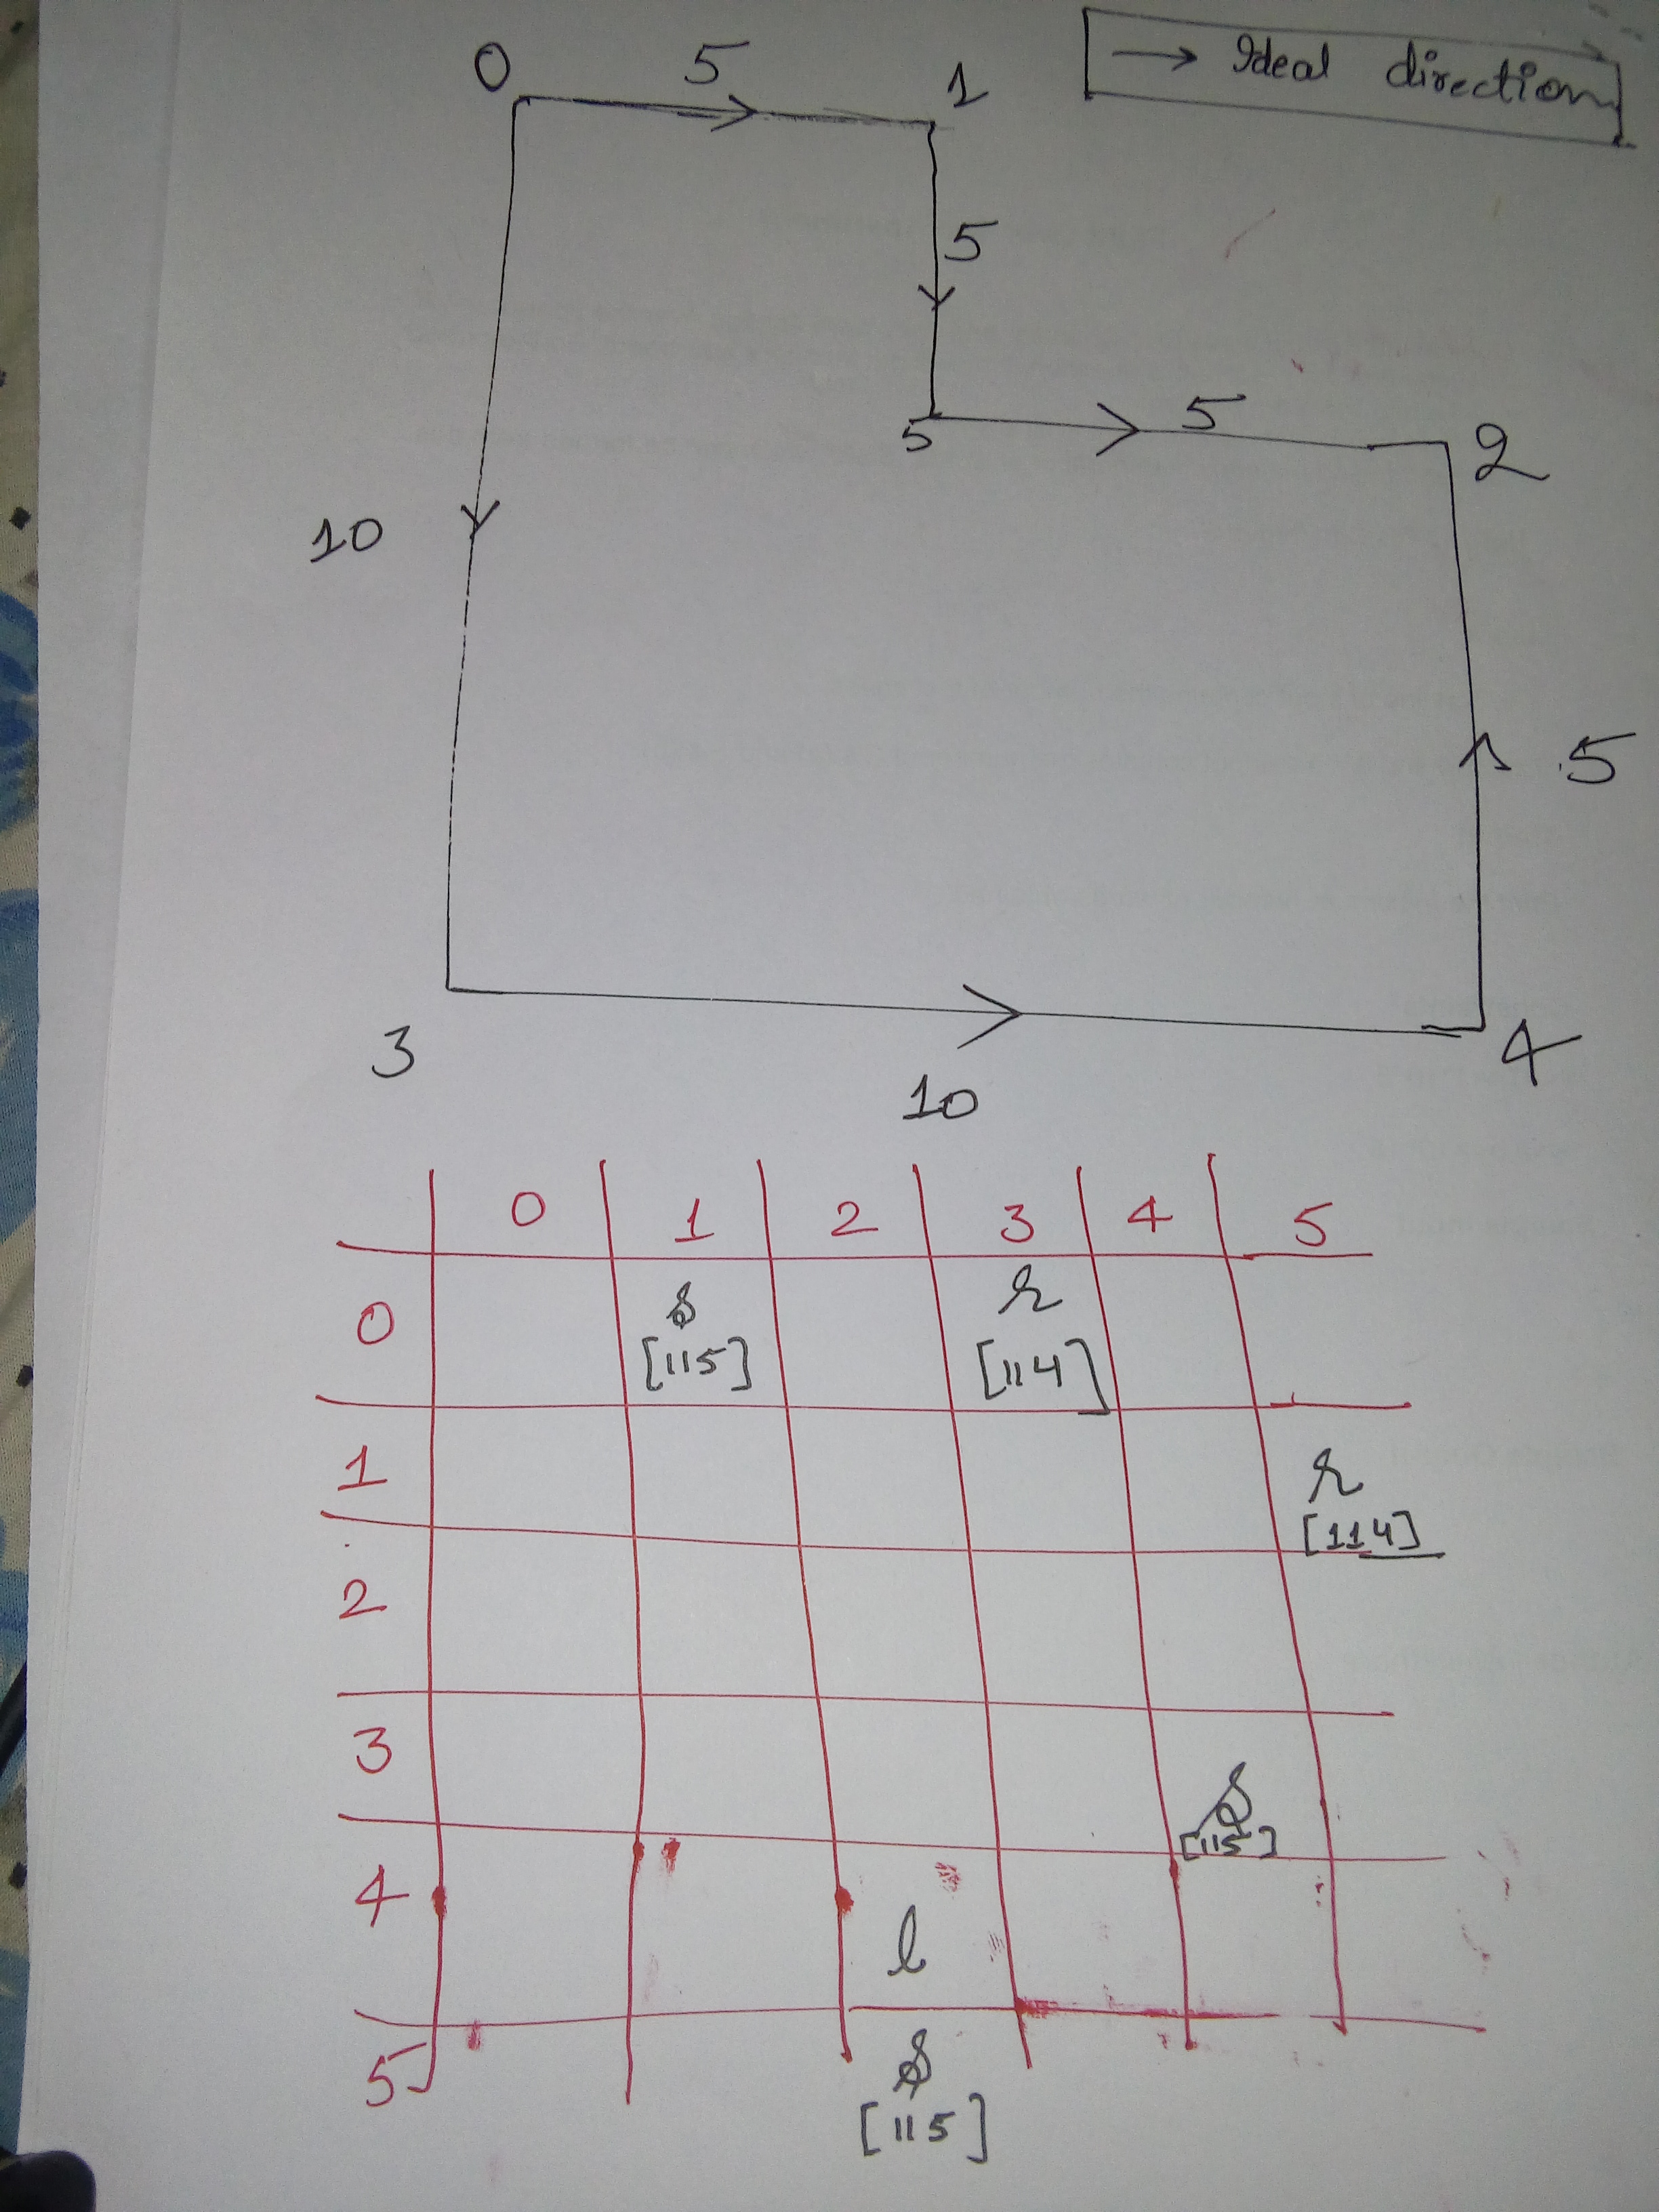 → Ideal direction
0 5 1
5
5 5 2
10
5
3 4
10
0 1 2 3 4 5
0 s r
[115] [114]
1 r
[114]
2
3 s
[115]
4 l
5 s
[115]